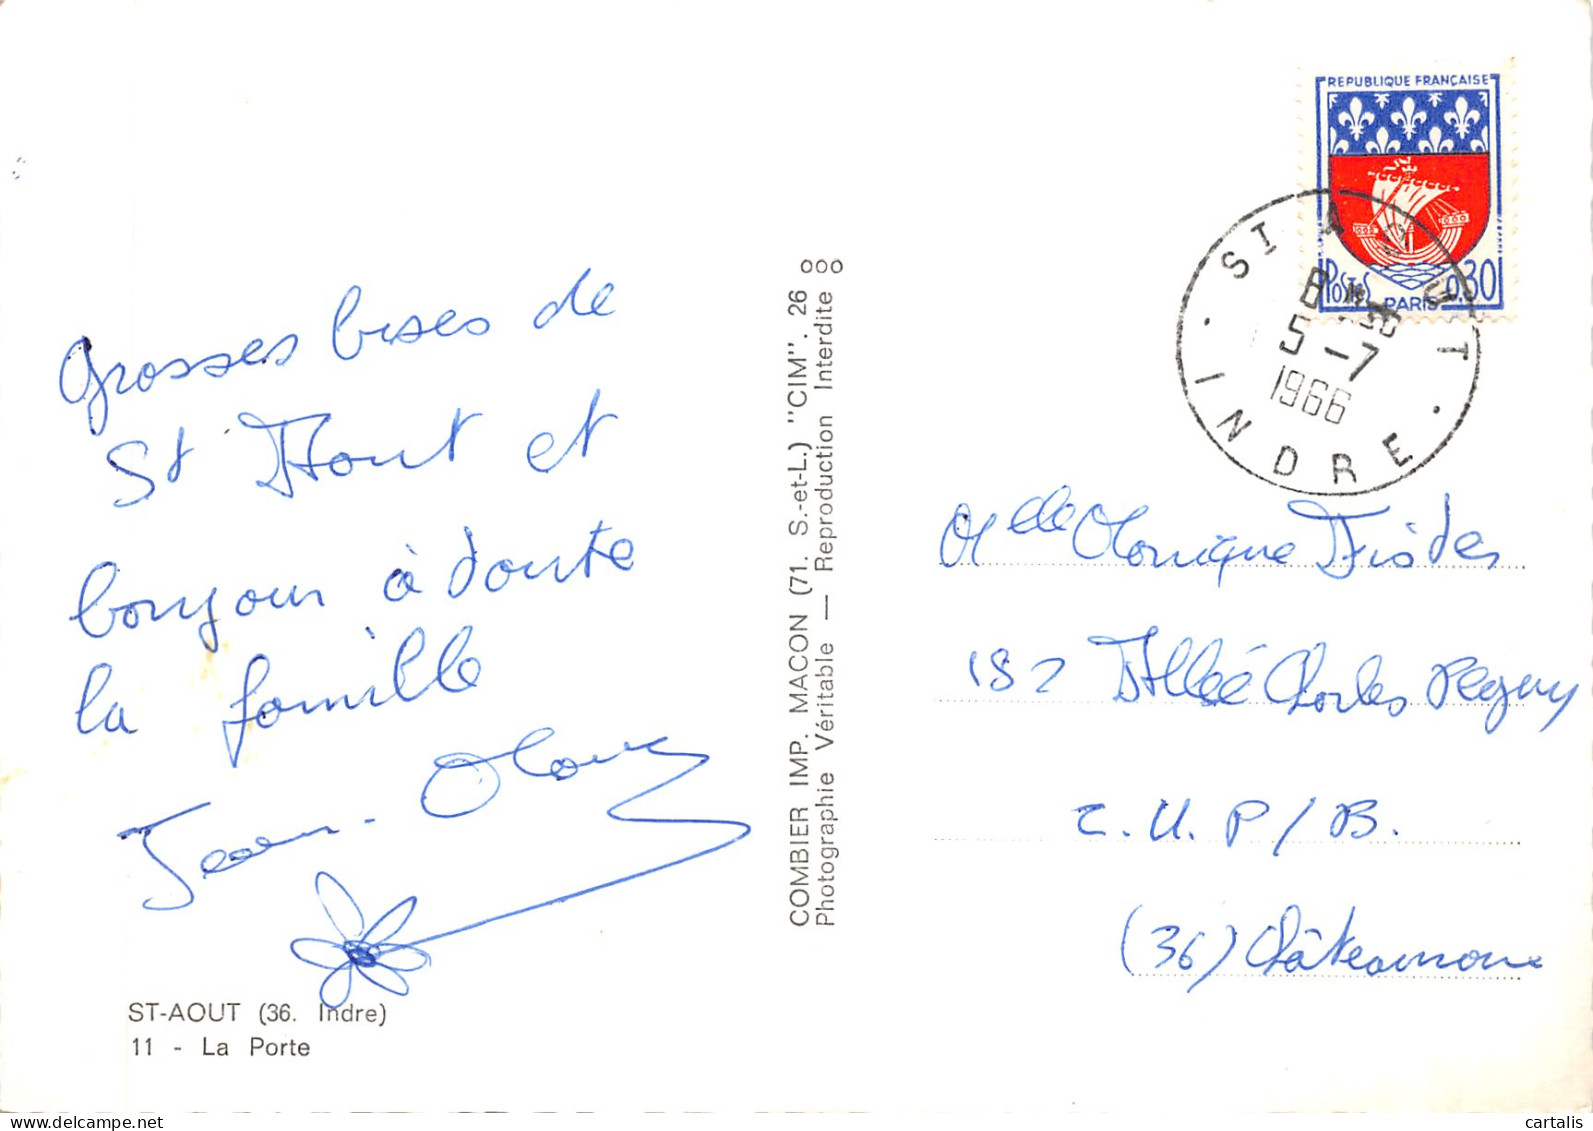 Grosses bises de
St Aout et
bonjour à toute
la famille
Jean-
ST-AOUT (36. Indre)
11 - La Porte
COMBIER IMP. MACON (71. S.-et-L.) "CIM". 26
Photographie Véritable — Reproduction Interdite
REPUBLIQUE FRANÇAISE
POSTES 0,30
PARIS
ST AOUT
8 H 30
5 - 7
1966
INDRE
Melle Monique
182 Allée Charles Peguy
Z.U.P/B.
(36) Châteauroux
cartalis